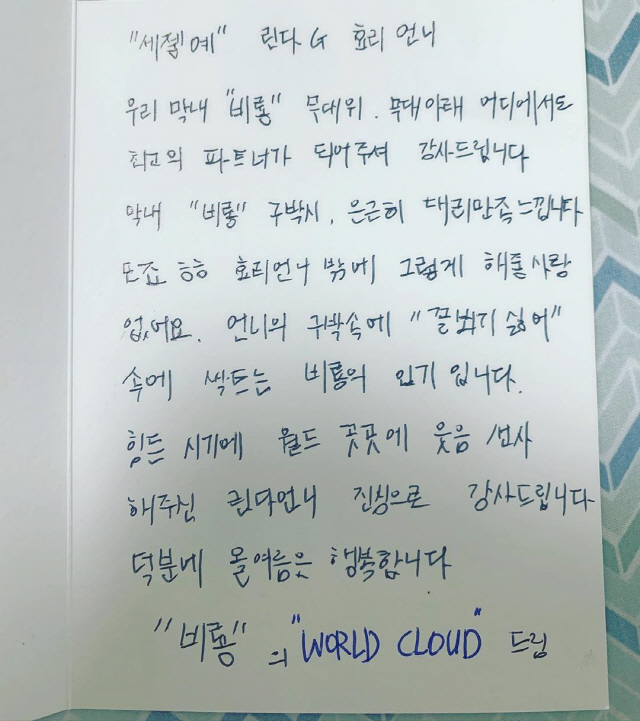 "세젤예" 린다 G 효리 언니
우리 막내 "비룡" 무대위. 무대아래 어디에서도
최고의 파트너가 되어주셔 감사드립니다
막내 "비룡" 구박시, 은근히 대리만족느낍니다
또죠 ㅎㅎ 효리언니 밖에 그렇게 해줄사람
없어요. 언니의 구박속에 "꼴뵈기싫어"
속에 싹트는 비룡의 인기 입니다.
힘든 시기에 월드 곳곳에 웃음 선사
해주신 린다언니 진심으로 감사드립니다
덕분에 올여름은 행복합니다
"비룡" 의 "WORLD CLOUD" 드림